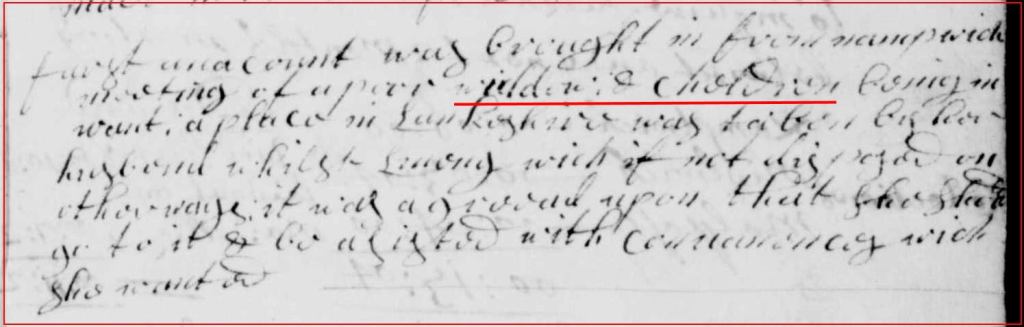 furst an acount was brought in from namp wich
meeting of a poor widdow & choldron being in
want; a place in Lankeshire was taken by her
husband whilst liveng wich if not disposed on
otherways it was agreead upon that she shold
go to it & be asisted with convanences wich
she wanted